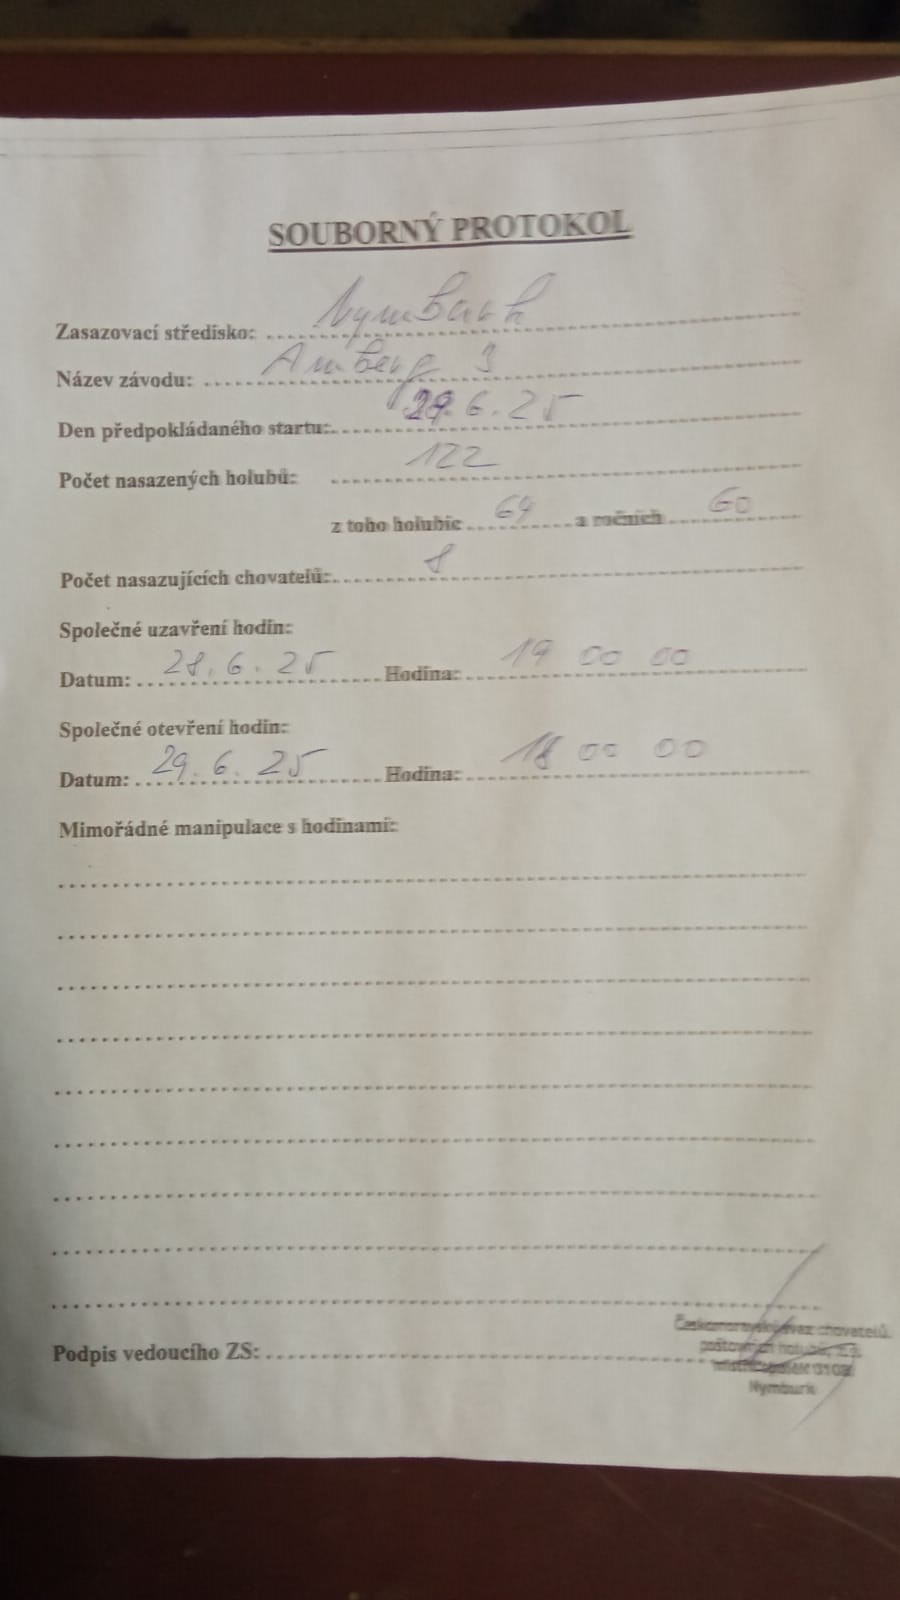 SOUBORNÝ PROTOKOL
Zasazovací středisko: Nymburk
Název závodu: Amberg 3
Den předpokládaného startu: 29.6.25
Počet nasazených holubů: 122
z toho holubic 64 a ročních 60
Počet nasazujících chovatelů: 8
Společné uzavření hodin:
Datum: 28.6.25 Hodina: 19 00 00
Společné otevření hodin:
Datum: 29.6.25 Hodina: 18 00 00
Mimořádné manipulace s hodinami:
Podpis vedoucího ZS:
Českomoravský svaz chovatelů
poštovních holubů, z.s.
Nymburk